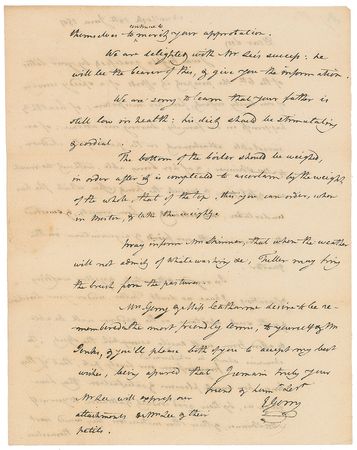 themselves to continue to merit your approbation.
We are delighted with Mr Lee's success: he
will be the bearer of this, & give you the information.
We are sorry to learn that your father is
still low in health: his diet should be stimulating
& cordial.
The bottom of the boiler should be weighed,
in order after it is completed to ascertain by the weight
of the whole, that of the top. this you can order, when
in & take the weight.
pray inform Mr Skinner, that when the weather
will not admit of white washing &c, Fuller may bring
the brush from the pastures.
Mrs Gerry & Miss Catharine desire to be re-
membered in the most friendly terms, to yourself & Mr
& you'll please both of you to accept my best
wishes, being assured that I remain truly your
friend & hum Sert
E Gerry
Mr Lee will express our
attachments & Mr Lee of their